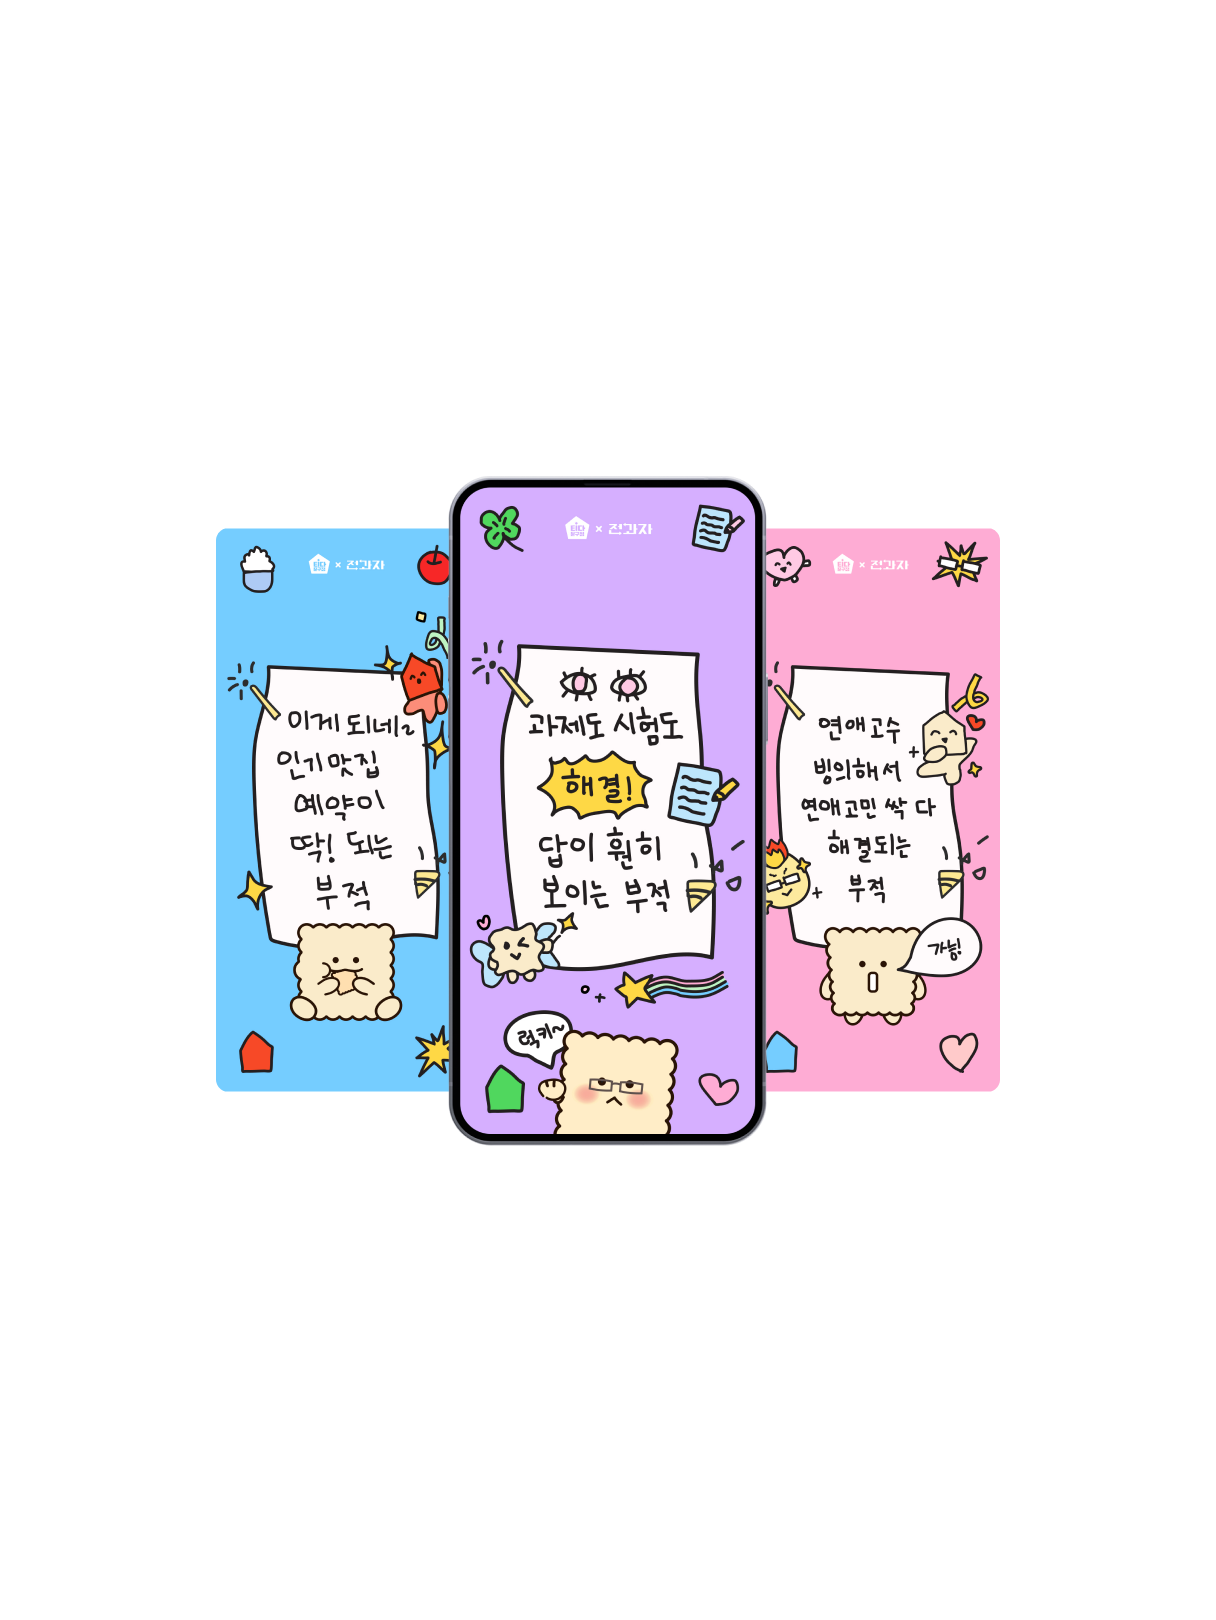 티다
× 전과자
이게 되네?
인기 맛집
예약이
딱! 되는
부적
티다
× 전과자
과제도 시험도
해결!
답이 훤히
보이는 부적
럭키~
티다
× 전과자
연애 고수
빙의해서
연애고민 싹 다
해결되는
부적
가능!